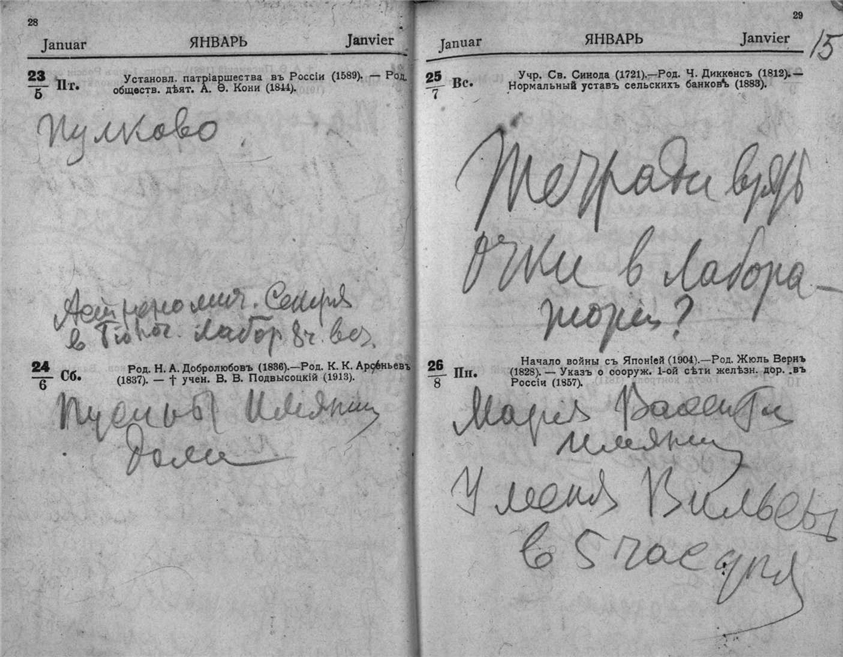 28
Januar ЯНВАРЬ Janvier
23/5 Пт. Установл. патріаршества въ Россіи (1589). — Род.
обществ. дѣят. А. Ѳ. Кони (1844).
Пулково.
Астрономич.
в лабор 8 ч. веч.
24/6 Сб. Род. Н. А. Добролюбовъ (1836).—Род. К. К. Арсеньевъ
(1837). — † учен. В. В. Подвысоцкій (1913).
имянин
дома
29
Januar ЯНВАРЬ Janvier
15
25/7 Вс. Учр. Св. Синода (1721).—Род. Ч. Диккенсъ (1812).—
Нормальный уставъ сельскихъ банковъ (1883).
Тетради
очки в лабора-
тории?
26/8 Пн. Начало войны съ Японіей (1904).—Род. Жюль Вернъ
(1828). — Указъ о сооруж. 1-ой сѣти желѣзн. дор. въ
Россіи (1857).
Мария
имянин
У меня
в 5 час дня